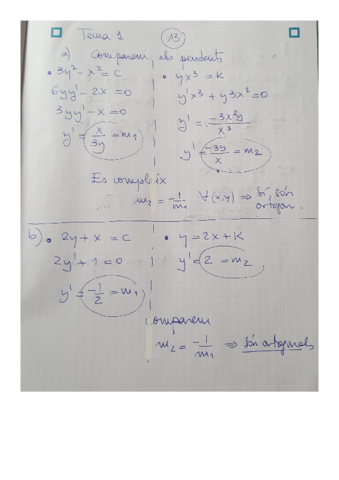 Tema 1 13
a) Comparem els pendents
• 3y² - x² = C
6yy' - 2x = 0
3yy' - x = 0
y' = x/3y = m₁
• yx³ = K
y'x³ + y3x² = 0
y' = -3x²y/x³
y' = -3y/x = m₂
Es compleix
m₂ = -1/m₁ ∀(x,y) ⇒ Sí, són
ortogon.
b) • 2y + x = C
2y' + 1 = 0
y' = -1/2 = m₁
• y = 2x + K
y' = 2 = m₂
Comparem
m₂ = -1/m₁ ⇒ Són ortogonals